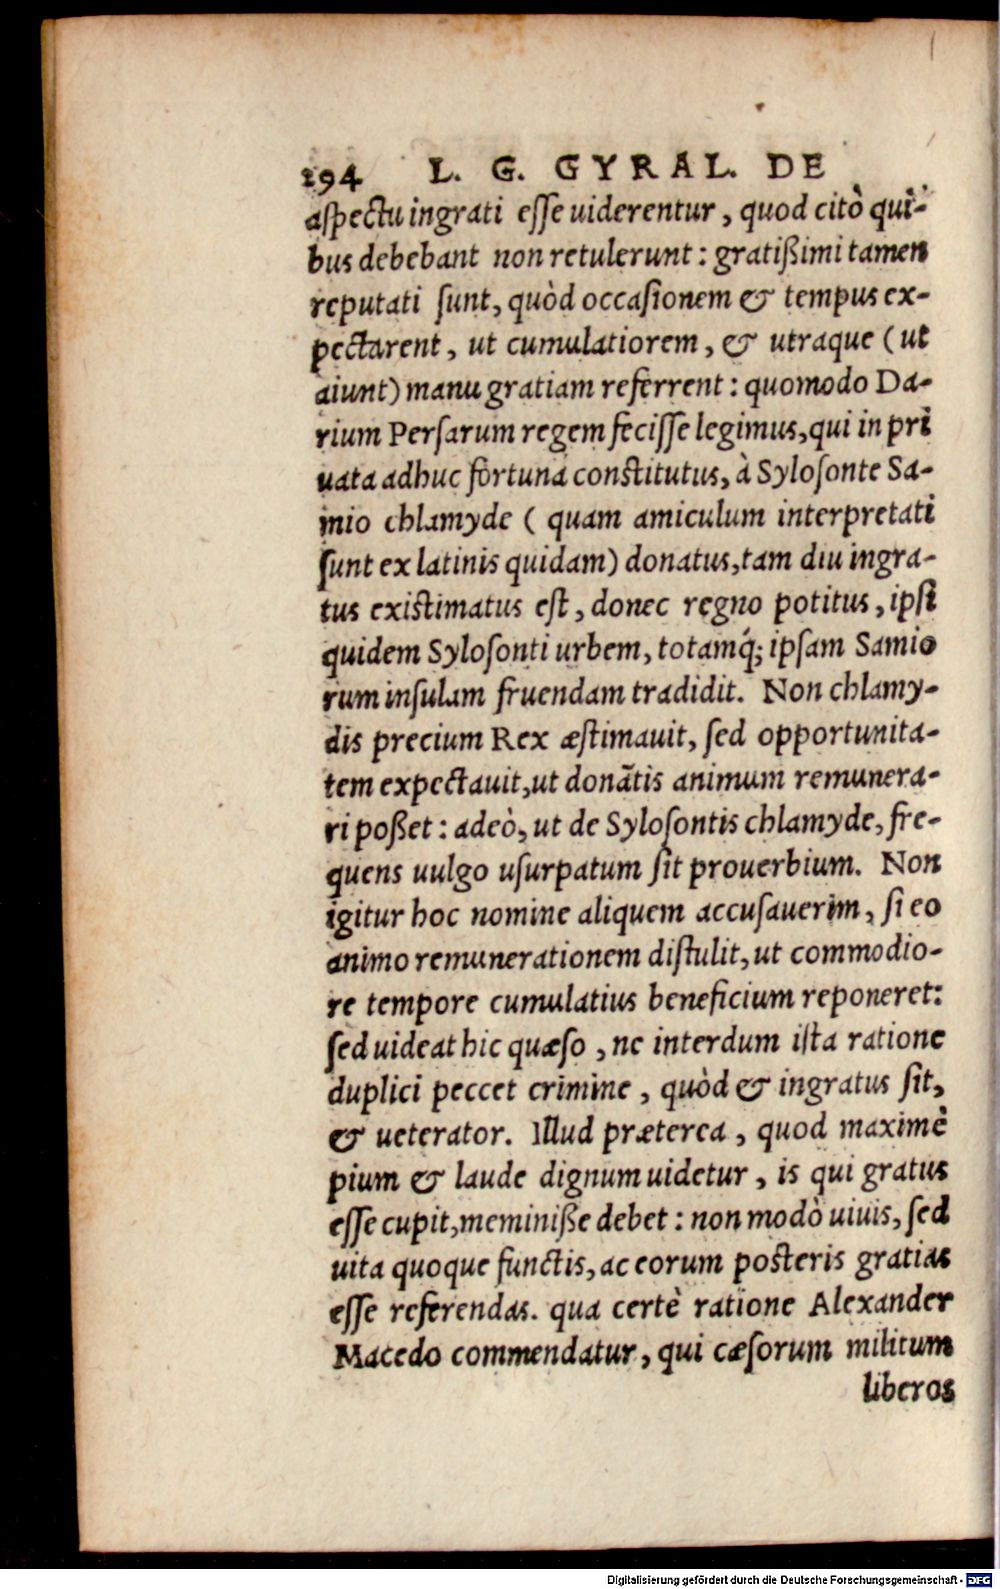 194 L. G. GYRAL. DE
aſpectu ingrati eſſe uiderentur, quod citò qui-
bus debebant non retulerunt: gratißimi tamen
reputati ſunt, quòd occaſionem & tempus ex-
pectarent, ut cumulatiorem, & utraque (ut
aiunt) manu gratiam referrent: quomodo Da-
rium Perſarum regem feciſſe legimus, qui in pri
uata adhuc fortuna conſtitutus, à Syloſonte Sa-
mio chlamyde ( quam amiculum interpretati
ſunt ex latinis quidam) donatus, tam diu ingra-
tus exiſtimatus eſt, donec regno potitus, ipſi
quidem Syloſonti urbem, totamq́; ipſam Samio
rum inſulam fruendam tradidit. Non chlamy-
dis precium Rex æſtimauit, ſed opportunita-
tem expectauit, ut donãtis animum remunera-
ri poßet: adeò, ut de Syloſontis chlamyde, fre-
quens uulgo uſurpatum ſit prouerbium. Non
igitur hoc nomine aliquem accuſauerim, ſi eo
animo remunerationem diſtulit, ut commodio-
re tempore cumulatius beneficium reponeret:
ſed uideat hic quæſo, ne interdum iſta ratione
duplici peccet crimine, quòd & ingratus ſit,
& ueterator. Illud præterea, quod maximè
pium & laude dignum uidetur, is qui gratus
eſſe cupit, meminiße debet: non modò uiuis, ſed
uita quoque functis, ac eorum poſteris gratias
eſſe referendas. qua certè ratione Alexander
Macedo commendatur, qui cæſorum militum
liberos
Digitalisierung gefördert durch die Deutsche Forschungsgemeinschaft - DFG